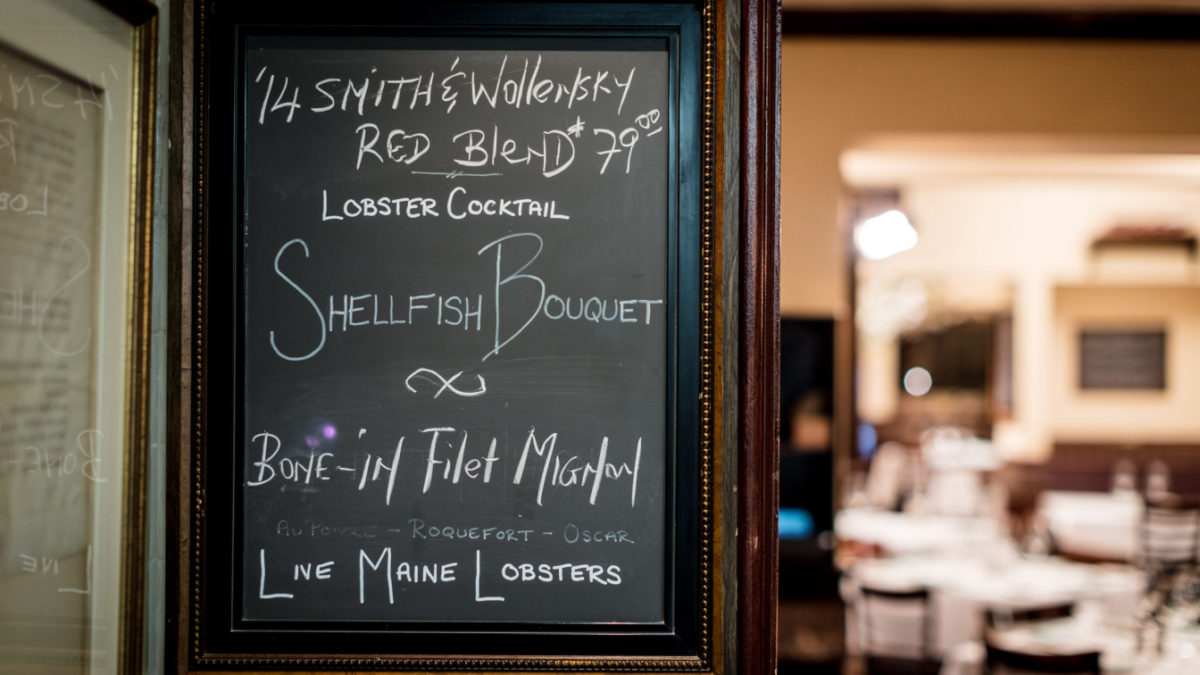 '14 SMITH & Wollensky
RED BlenD $79.00
LOBSTER COCKTAIL
SHELLFISH BOUQUET
BONE-IN Filet MIGNON
AU POIVRE - ROQUEFORT - OSCAR
LIVE MAINE LOBSTERS